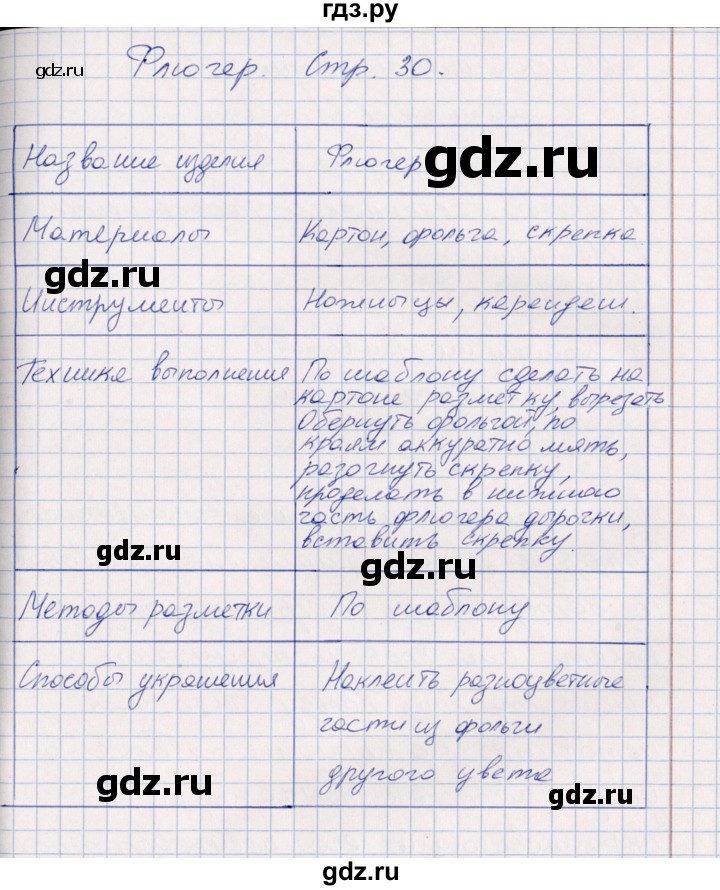 гдз.ру
gdz.ru
Флюгер. Стр. 30.
Название изделия
Флюгер
gdz.ru
Материалы
Картон, фольга, скрепка.
gdz.ru
Инструменты
Ножницы, карандаш.
Техника выполнения
По шаблону сделать на
картоне разметку, вырезать
Обернуть фольгой, по
краям аккуратно мять,
разогнуть скрепку,
проделать в нижнюю
часть флюгера дырочки,
вставить скрепку.
gdz.ru
gdz.ru
Методы разметки
По шаблону
Способы украшения
Наклеить разноцветные
части из фольги
другого цвета
gdz.ru
gdz.ru
gdz.ru